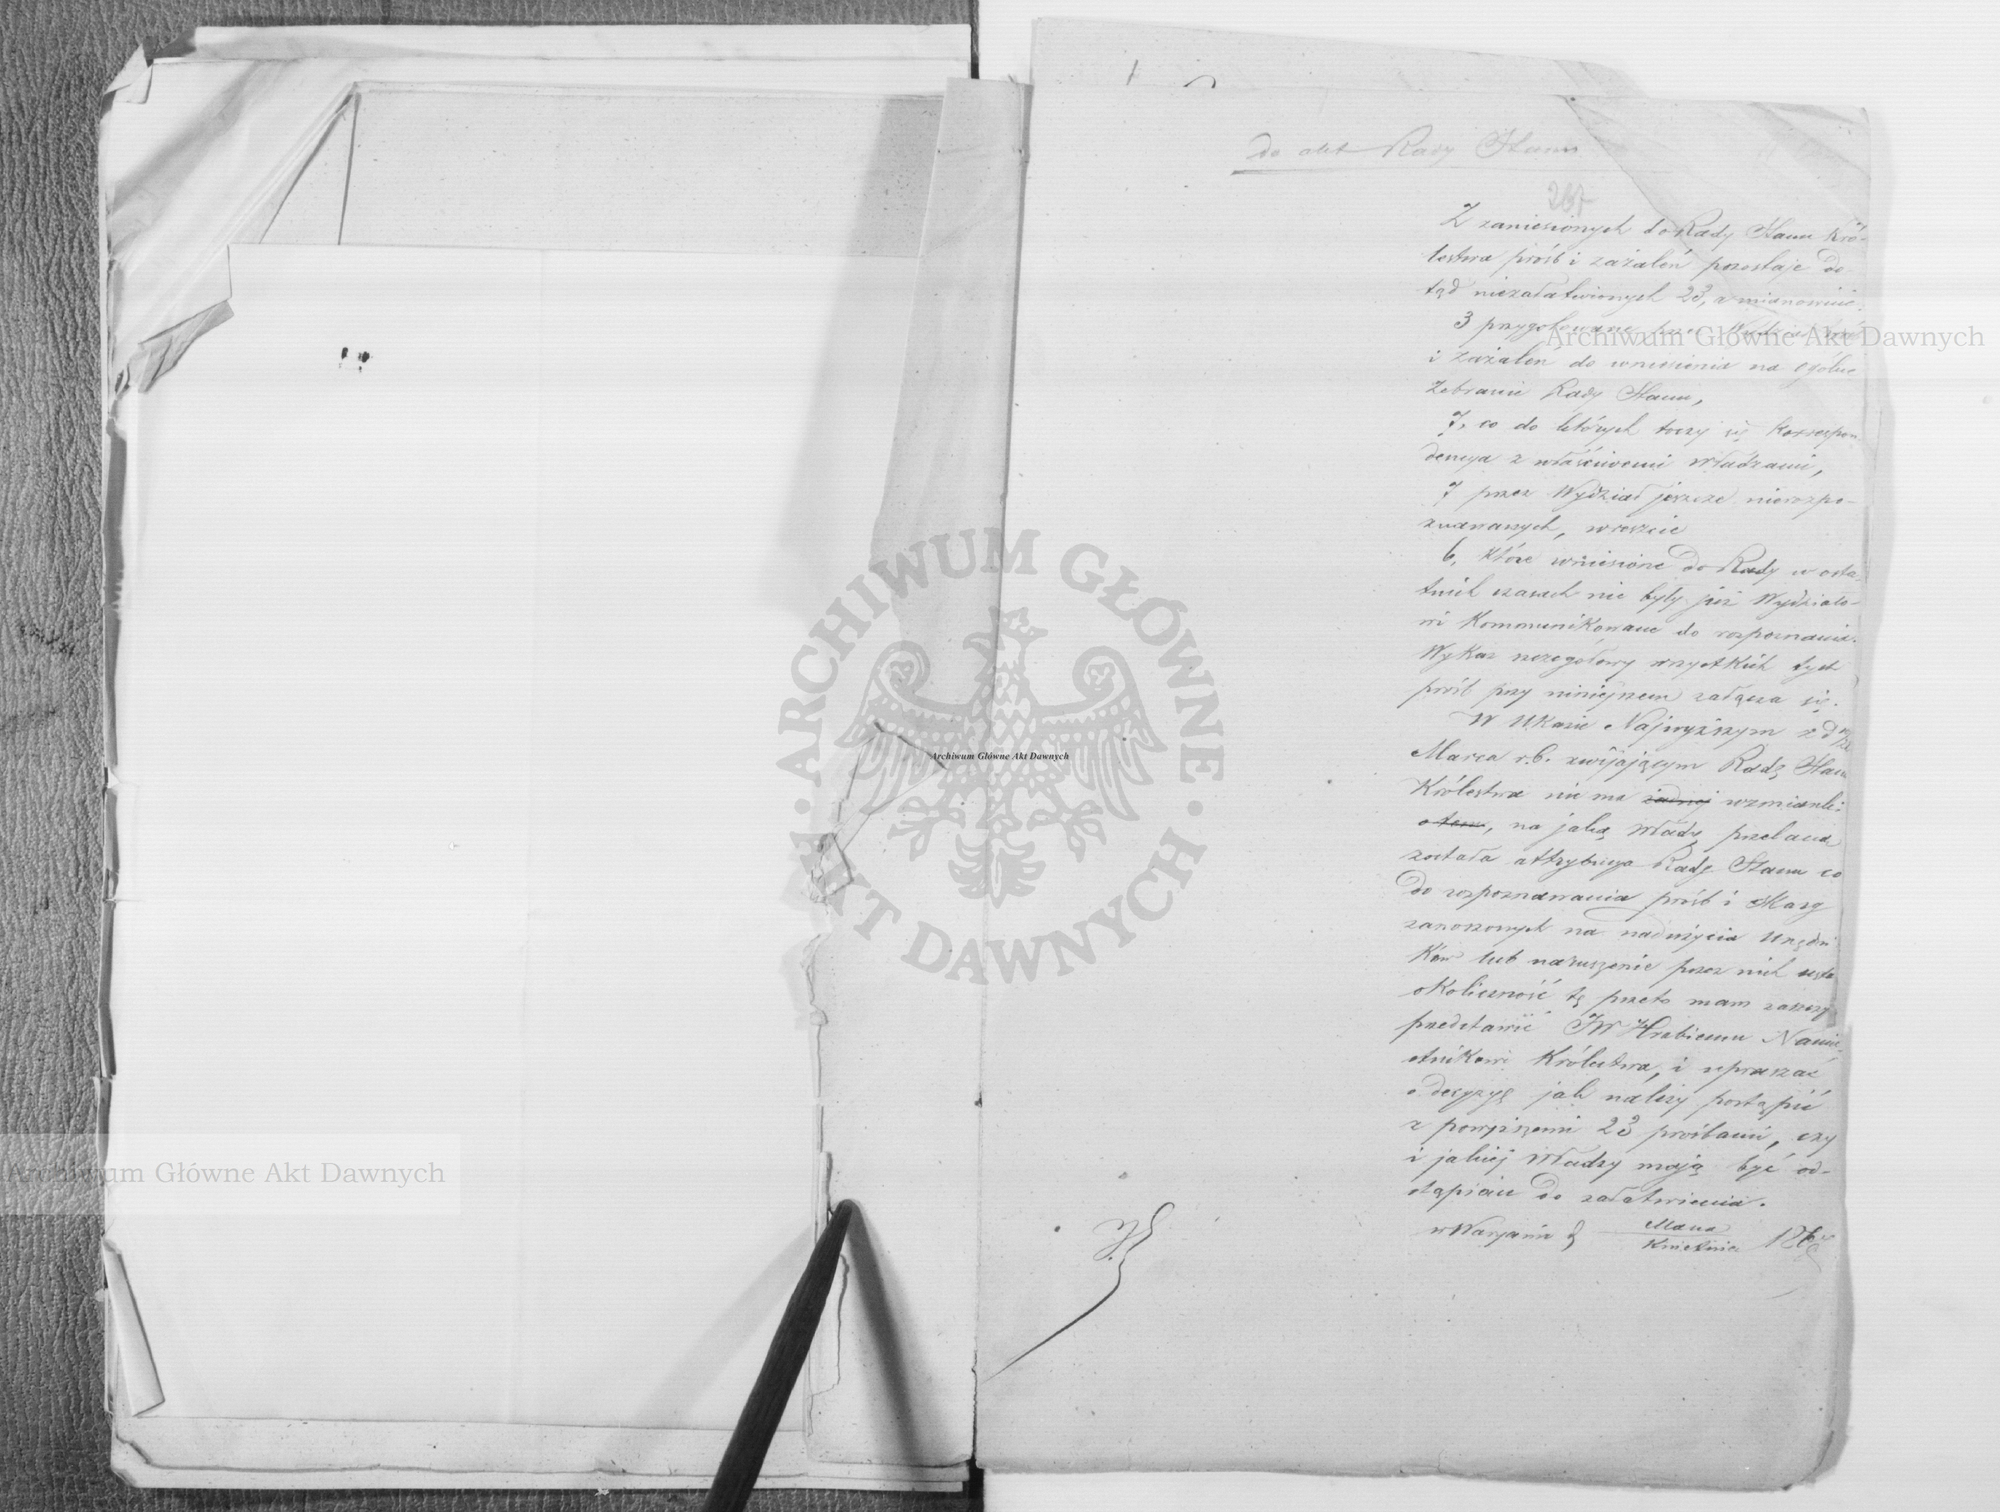 do akt Rady Stanu
267
Z zaniesionych do Rady Stanu Kró-
lestwa próśb i zażaleń pozostaje do-
tąd niezałatwionych 23, a mianowicie:
3 przygotowane przez Wydział
i zażaleń do wniesienia na ogólne
Zebranie Rady Stanu,
7, co do których toczy się Korrespon-
dencya z właściwemi Władzami,
7 przez Wydział jeszcze nierozpo-
znawanych, wreszcie
6, które wniesione do Rady w osta-
tnich czasach nie były już Wydziało-
wi Kommunikowane do rozpoznania.
Wykaz szczegółowy wszystkich tych
próśb przy niniejszem załącza się.
W Ukazie Najwyższym z d
Marca r.b. zwijającym Radę Stanu
Królestwa nie ma żadnej wzmianki
o tem, na jaką Władzę przelana
została attrybucya Rady Stanu co
do rozpoznawania próśb i skarg
zanoszonych na nadużycia Urzędni
Ków lub naruszenie przez nich
okoliczność tę przeto mam zaszczyt
przedstawić JW Hrabiemu Namie-
stnikowi Królestwa, i upraszać
o decyzyę jak należy postąpić
z powyższemi 23 prośbami, czy
i jakiej Władzy mają być od-
stąpione do załatwienia.
w Warszawie d Marca
Kwietnia 186
Archiwum Główne Akt Dawnych
Archiwum Główne Akt Dawnych
Archiwum Główne Akt Dawnych
ARCHIWUM GŁÓWNE AKT DAWNYCH